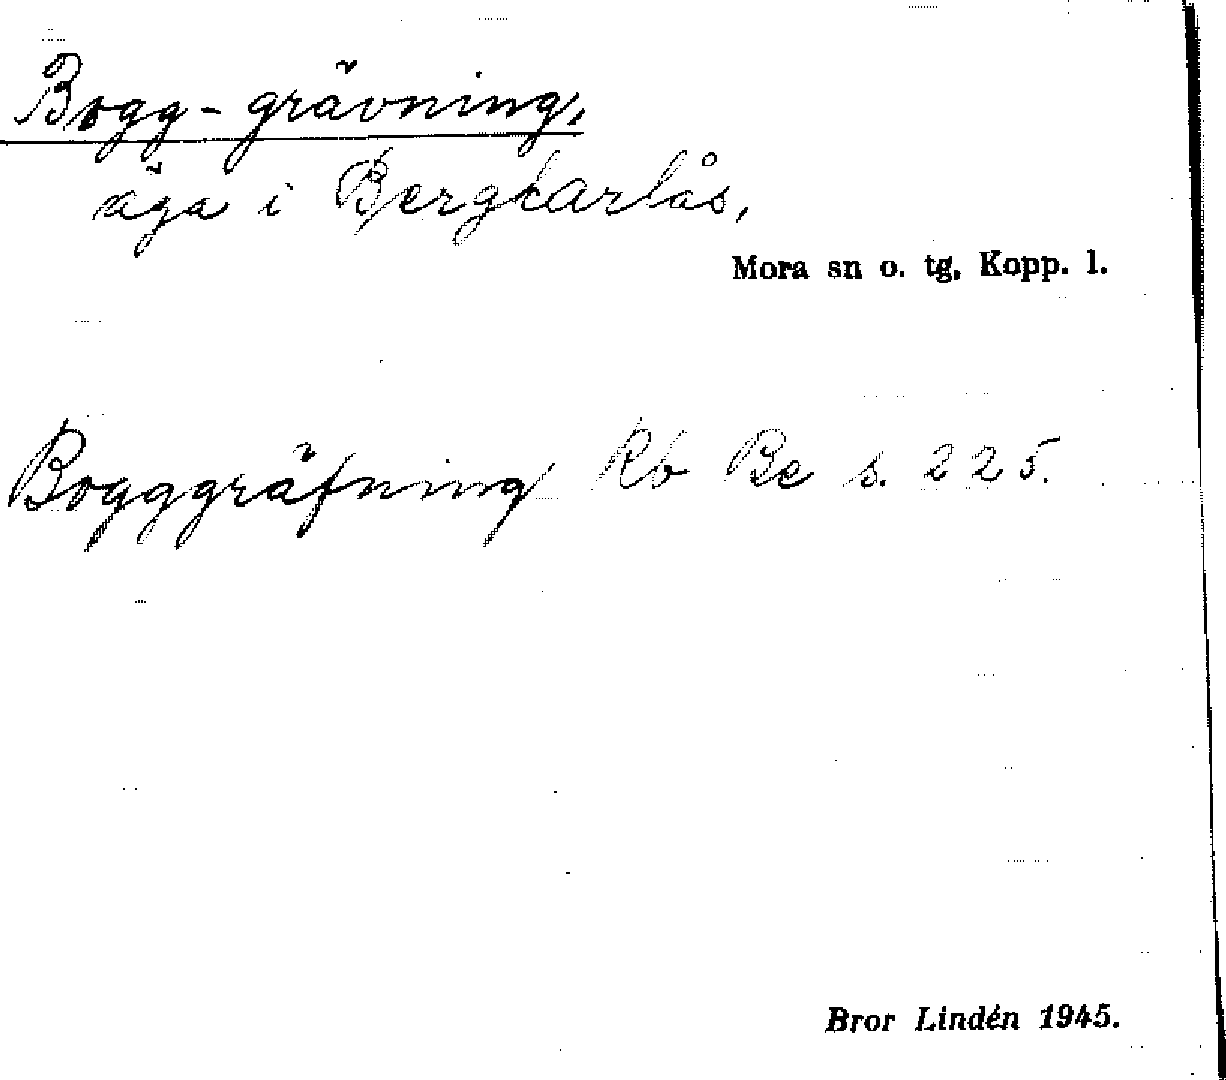 Bogg-grävning,
äga i Bergkarlås,
Mora sn o. tg, Kopp. l.
Bogggräfning Rb Be s. 225.
Bror Lindén 1945.